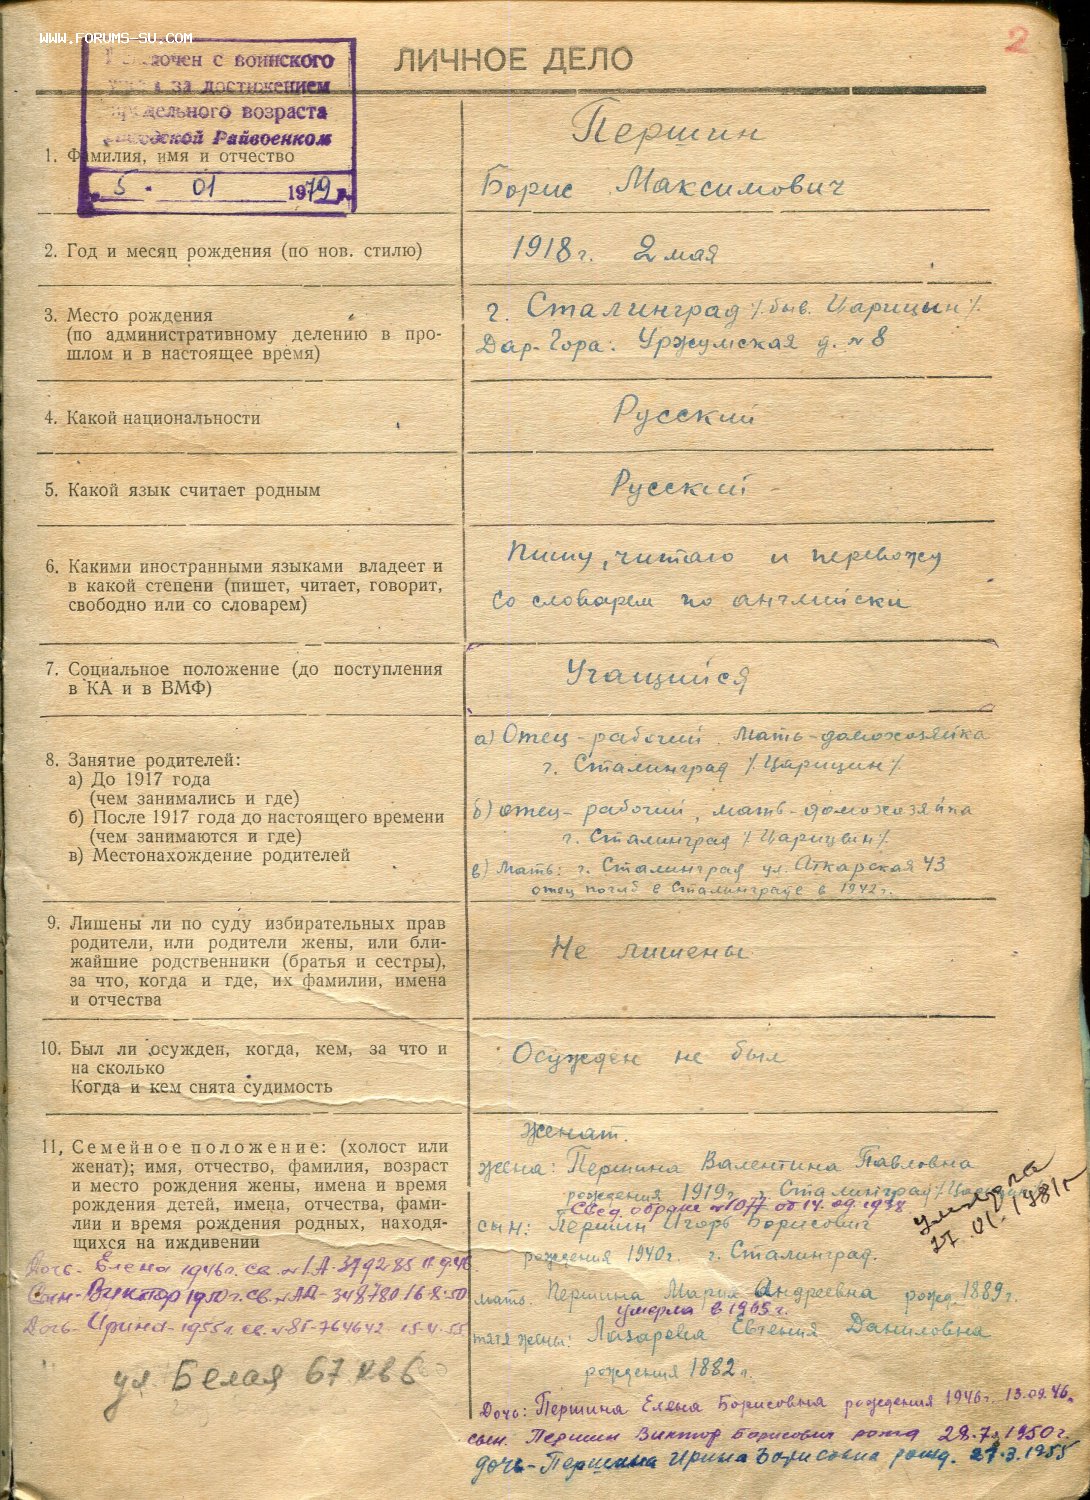 WWW.FORUMS-SU.COM
2
ЛИЧНОЕ ДЕЛО
с воинского
за достижением
возраста
Райвоенком
5. 01 1979 г.
1. Фамилия, имя и отчество
Першин
Борис Максимович
2. Год и месяц рождения (по нов. стилю)
1918 г. 2 мая
3. Место рождения
(по административному делению в про-
шлом и в настоящее время)
г. Сталинград /быв. Царицын/.
Дар-Гора. Уржумская д. №8
4. Какой национальности
Русский
5. Какой язык считает родным
Русский
6. Какими иностранными языками владеет и
в какой степени (пишет, читает, говорит,
свободно или со словарем)
Пишу, читаю и перевожу
со словарем по английски
7. Социальное положение (до поступления
в КА и в ВМФ)
Учащийся
8. Занятие родителей:
а) До 1917 года
(чем занимались и где)
б) После 1917 года до настоящего времени
(чем занимаются и где)
в) Местонахождение родителей
а) Отец - рабочий. Мать - домохозяйка
г. Сталинград /Царицин/.
б) отец - рабочий, мать - домохозяйка
г. Сталинград /Царицын/.
в) Мать: г. Сталинград ул. Аткарская 43
отец погиб в Сталинграде в 1942 г.
9. Лишены ли по суду избирательных прав
родители, или родители жены, или бли-
жайшие родственники (братья и сестры),
за что, когда и где, их фамилии, имена
и отчества
Не лишены
10. Был ли осужден, когда, кем, за что и
на сколько
Когда и кем снята судимость
Осужден не был
11. Семейное положение: (холост или
женат); имя, отчество, фамилия, возраст
и место рождения жены, имена и время
рождения детей, имена, отчества, фами-
лии и время рождения родных, находя-
щихся на иждивении
Женат.
жена: Першина Валентина Павловна
рождения 1919 г. г. Сталинград
Свед. о браке №1077 от 14.09.1938
умерла
27.01.1981 г
сын: Першин Игорь Борисович
рождения 1940 г. г. Сталинград.
мать. Першина Мария Андреевна рожд. 1889 г.
умерла в 1965 г.
жены: Лазарева Евгения Даниловна
рождения 1882 г.
Дочь: Першина Елена Борисовна рождения 1946 г. 13.09.46
сын. Першин Виктор Борисович рожд 28.7.1950 г.
дочь - Першина Ирина Борисовна рожд. 27.3.1955
Дочь - Елена 1946 г. св.
Сын - Виктор 1950 г. св. 348780 16.8.50
Дочь - Ирина - 1955 г. св. 764642
ул. Белая 67 кв 6